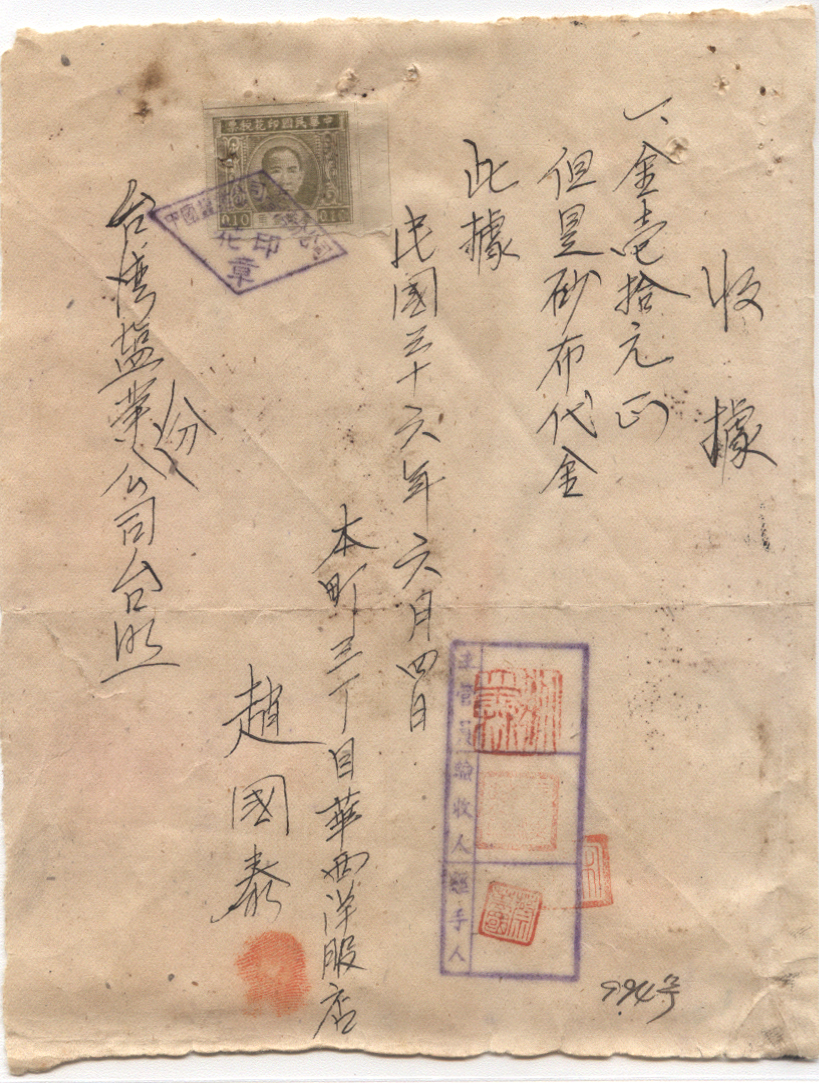 收據
一、金壹拾元正
但是砂布代金
此據
民國三十六年六月四日
本町三丁目華西洋服店
趙國泰
台灣塩業公司台照
份
中華民國印花稅票
010 010
花印
章
主管員
驗收人
經手人
994号